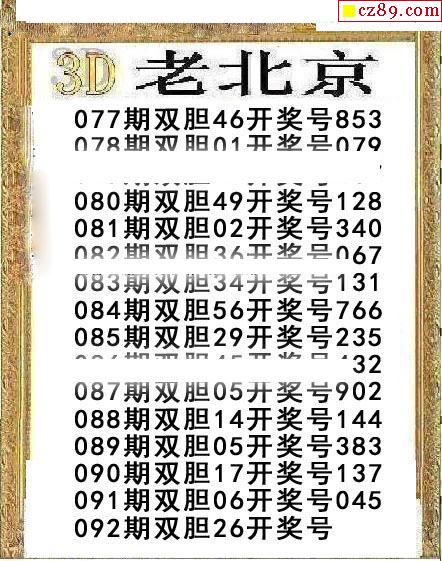 cz89.com
3D 老北京
077期双胆46开奖号853
078期双胆01开奖号079
080期双胆49开奖号128
081期双胆02开奖号340
082期双胆36开奖号067
083期双胆34开奖号131
084期双胆56开奖号766
085期双胆29开奖号235
086期双胆45开奖号432
087期双胆05开奖号902
088期双胆14开奖号144
089期双胆05开奖号383
090期双胆17开奖号137
091期双胆06开奖号045
092期双胆26开奖号